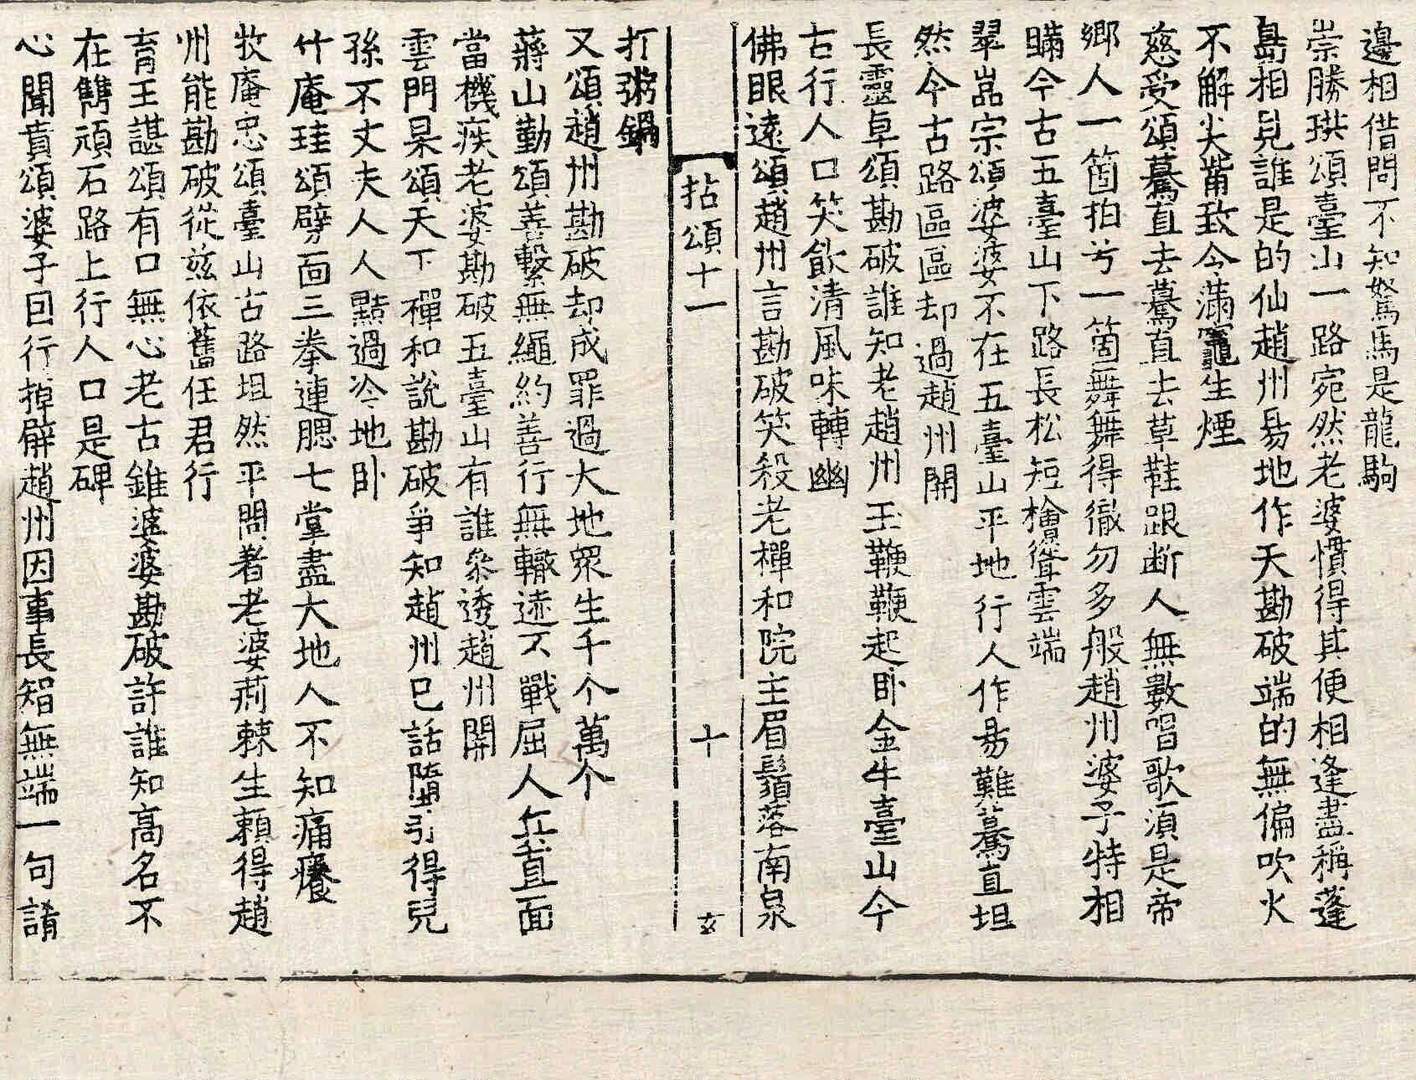 邊相借問不知駑馬是龍駒
崇勝珙頌臺山一路宛然老婆慣得其便相逢盡稱蓬
島相見誰是的仙趙州易地作天勘破端的無偏吹火
不解尖觜致今滿竈生煙
慈受頌驀直去驀直去草鞋跟断人無數唱歌須是帝
鄉人一箇拍兮一箇舞舞得徹勿多般趙州婆子特相
瞞今古五臺山下路長松短檜聳雲端
翠嵓宗頌婆婆不在五臺山平地行人作易難驀直坦
然今古路區區却過趙州關
長靈卓頌勘破誰知老趙州玉鞭鞭起卧金牛臺山今
古行人口笑飲清風味轉幽
佛眼遠頌趙州言勘破笑殺老禪和院主眉鬚落南泉
拈頌十一 十 玄
打粥鍋
又頌趙州勘破却成罪過大地眾生千个萬个
蔣山勤頌善繫無繩約善行無轍迹不戰屈人兵直面
當機疾老婆勘破五臺山有誰叅透趙州關
雲門杲頌天下禪和說勘破爭知趙州已話墮引得兒
孫不丈夫人人點過冷地卧
什庵珪頌劈面三拳連腮七掌盡大地人不知痛癢
牧庵忠頌臺山古路坦然平問着老婆荊棘生頼得趙
州能勘破從兹依舊任君行
育王諶頌有口無心老古錐婆婆勘破許誰知高名不
在鐫頑石路上行人口是碑
心聞賁頌婆子回行掉臂趙州因事長智無端一句誵